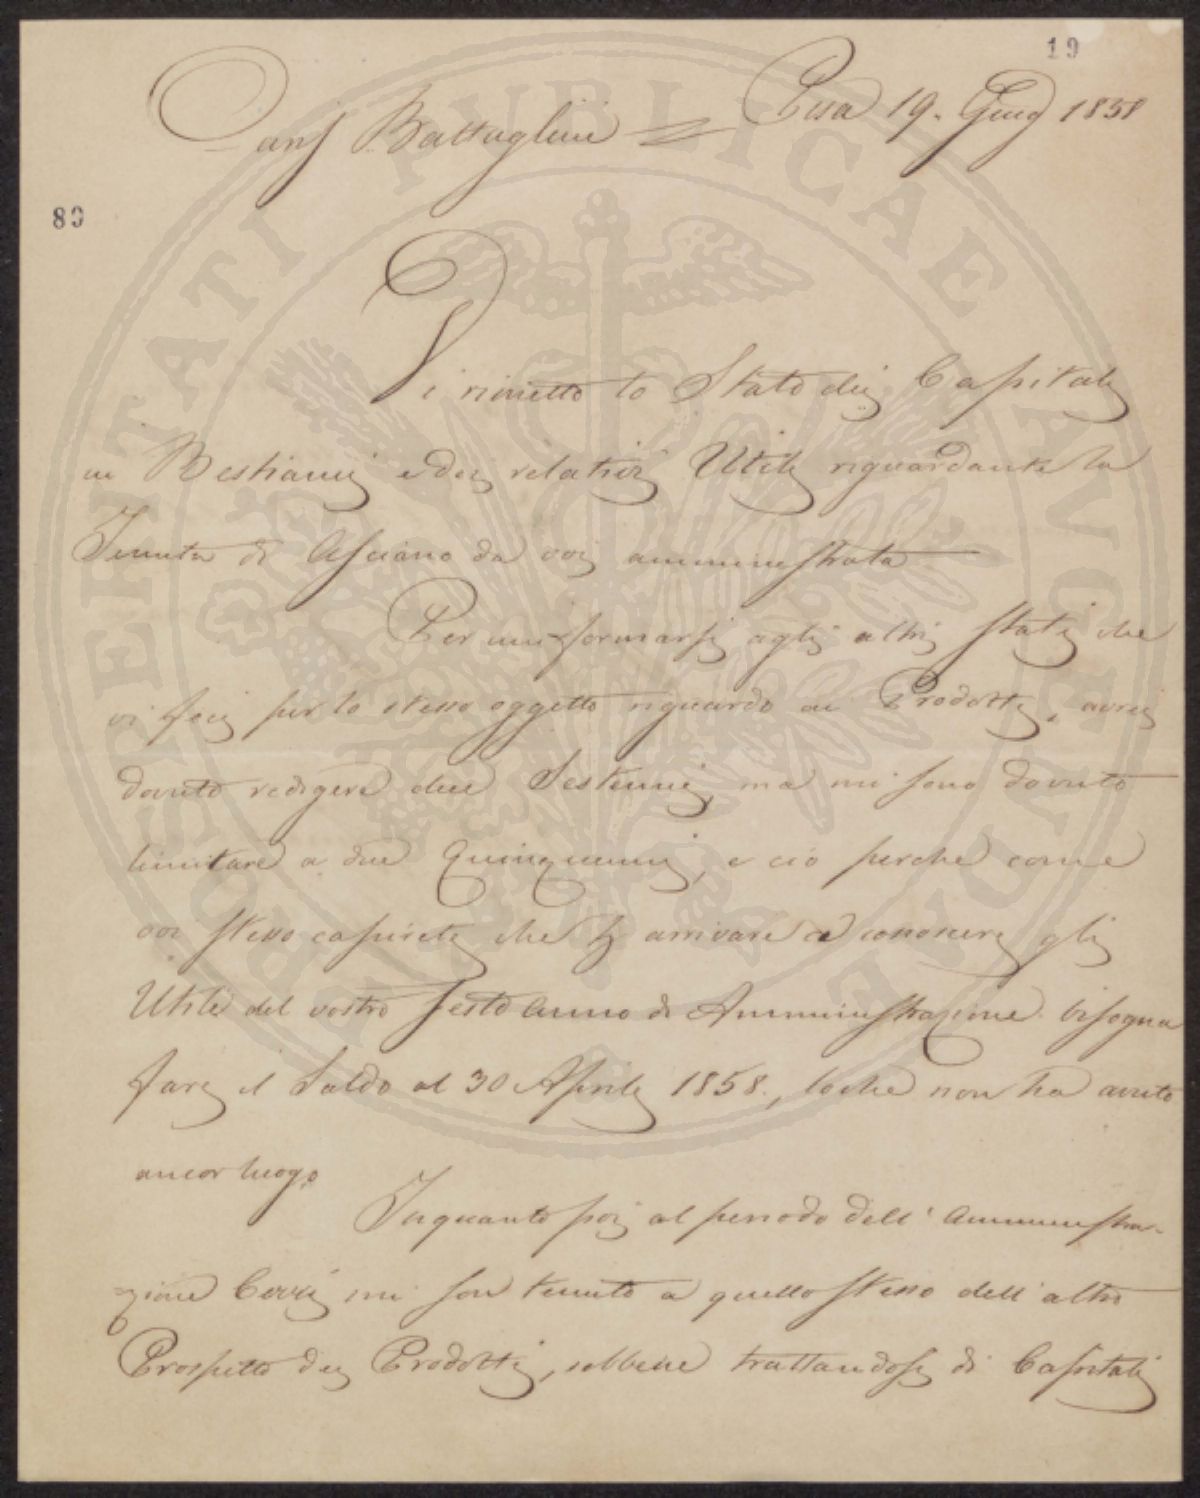 19
Pisa 19. Giug 1858
Battaglini
80
Vi rimetto lo Stato dei Capitali
in Bestiami e dei relativi Utili riguardante la
Tenuta di Asciano da voi amministrata
Per uniformarsi agli altri Stati che
vi feci per lo stesso oggetto riguardo ai Prodotti, avrei
dovuto redigere due Sestenni, ma mi sono dovuto
limitare a due Quinquenni, e ciò perche come
voi stesso capirete che p arrivare a conoscere gli
Utili del vostro sesto anno di Amministrazione bisogna
fare il Saldo al 30 Aprile 1858., loche non ha avuto
ancor luogo
Inquanto poi al periodo dell' Amministra-
zione mi son tenuto a quello stesso dell' altro
Prospetto dei Prodotti, sebbene trattandosi di Capitali
PROSPERITATI PVBLICAE AVGENDAE